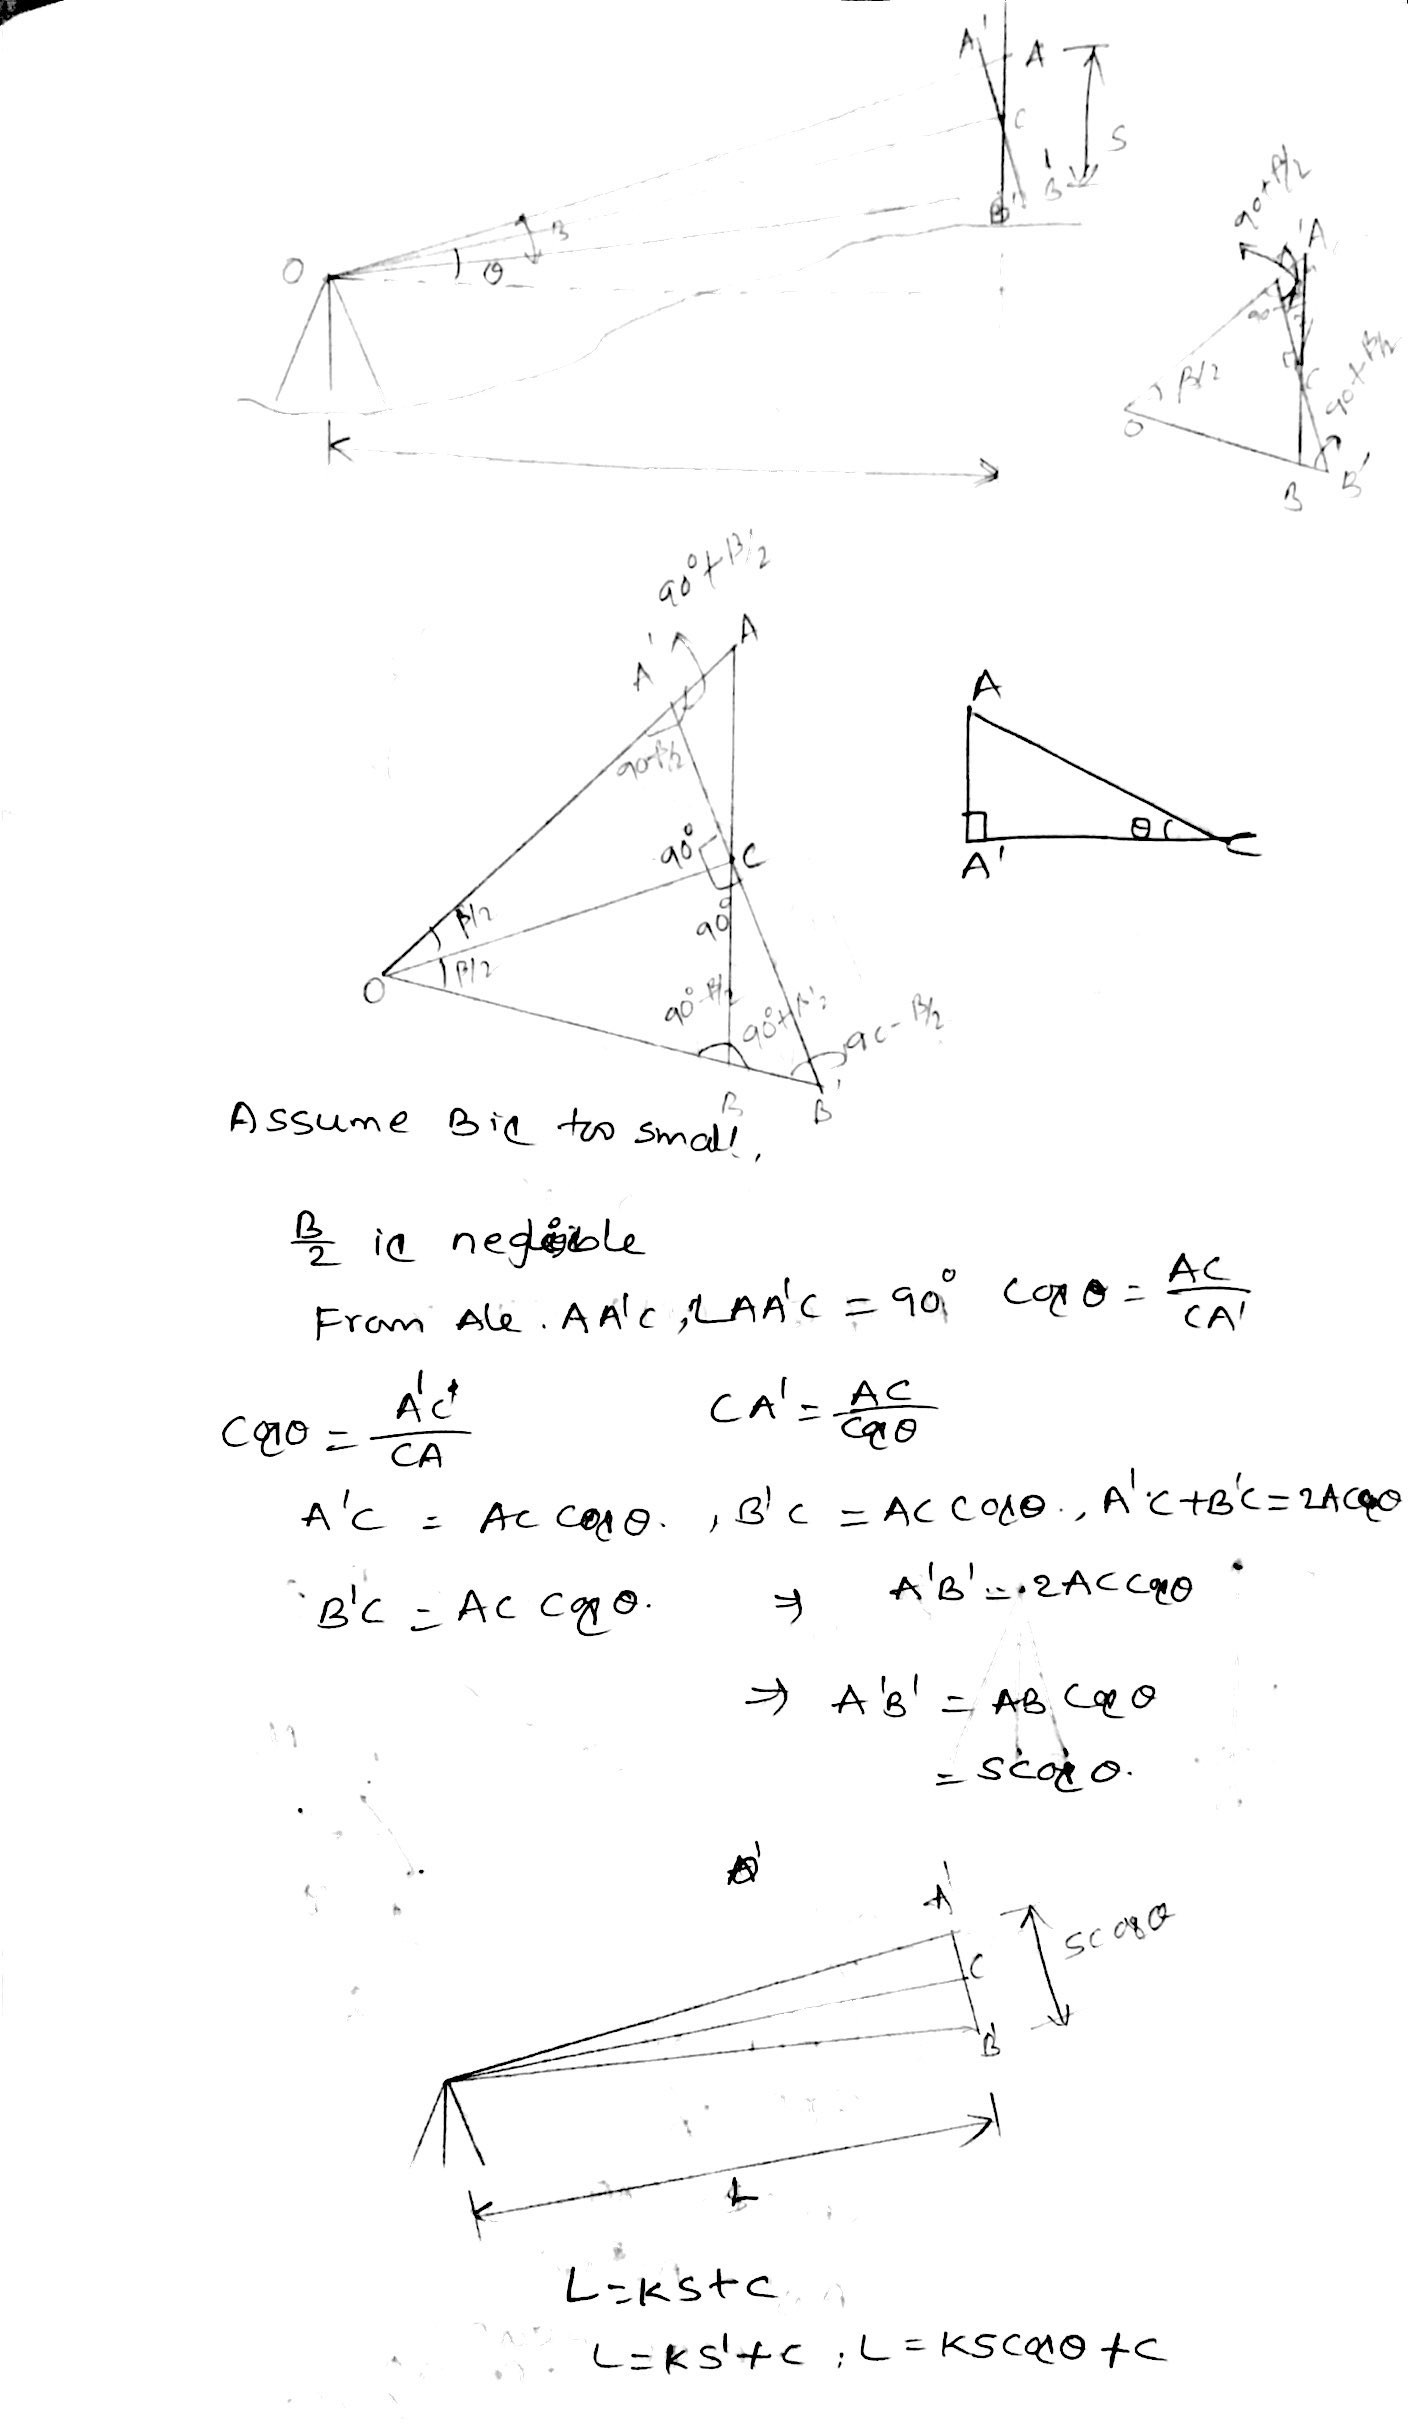 A' A
C
S
B' B
β
O θ
k
90+β/2
A' A
90-
β/2
C
90+β/2
O
B B'
90°+β/2
A' A
90-β/2
90° C
90°
β/2
β/2
O
90°-β/2 90°+β/2 90-β/2
B B'
A
θ
A' C
Assume B is too small,
B/2 is negligible
From Ale. AA'C, ∠AA'C = 90° Cos θ = AC/CA'
Cosθ = A'C/CA CA' = AC/Cosθ
A'C = AC Cosθ. , B'C = AC Cosθ., A'C+B'C = 2ACosθ
B'C = AC Cosθ. ⇒ A'B' = 2AC Cosθ
⇒ A'B' = AB Cosθ
= SCosθ.
A'
C
SCosθ
B'
L
L=KS+C
L=KS'+C ; L=KSCosθ+C